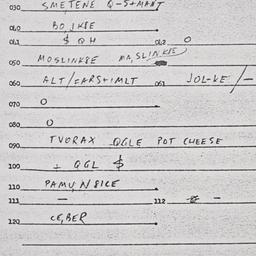 030. SMETENE Q-S+MAKT
040 BO,IKSE
041 $ QH 042 O
050 MOSLINKSE MA,SLINKSE
060 ALT/=ARS+IMLT 061 JOL-KE/-
070 O
080 O
090 TVORAX QGLE POT CHEESE
100 + QGL $
110 PAMU,N8ICE
111 - 112 -
120 CE,BER